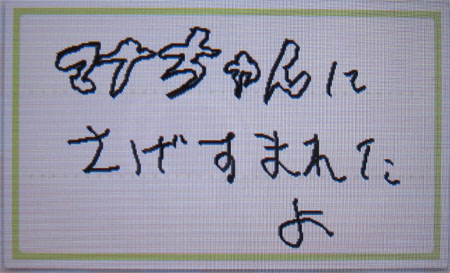 マナちゃんに
さげすまれた
よ